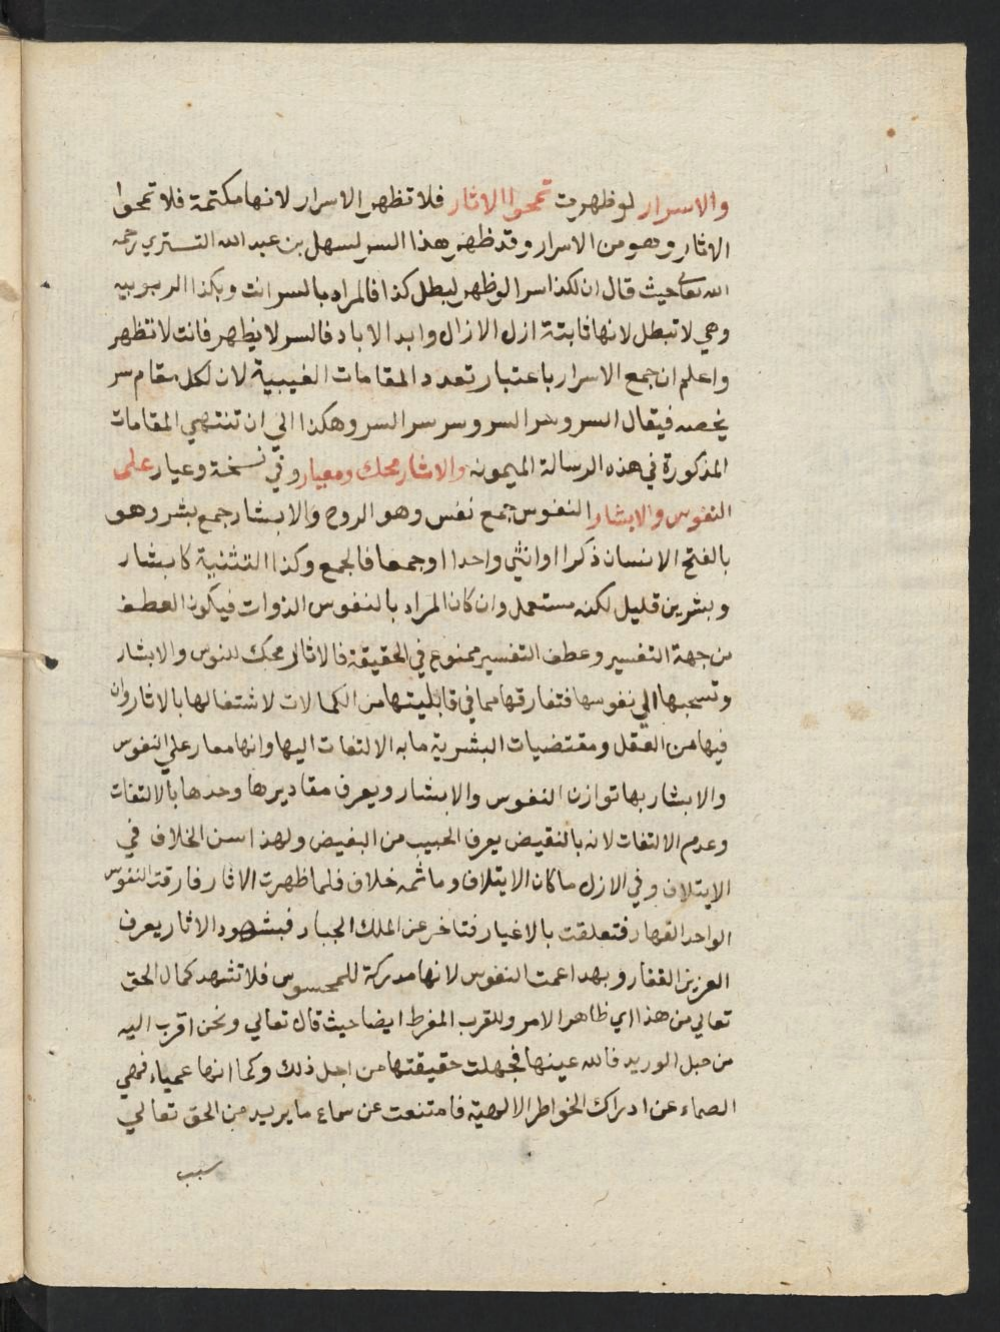 والاسرار لو ظهرت تمحوا الاثار فلا تظهر الاسرار لانها مكتمة فلا تمحوا
الاثار وهو من الاسرار وقد ظهر هذا السر لسهل بن عبد الله التستري رحمه
الله تعالى حيث قال ان لكذا سرا لو ظهر لبطل كذا فالمراد بالسر انت وبكذا الربوبيه
وهي لا تبطل لانها ثابتة ازل الازال وابد الاباد فالسر لا يظهر فانت لا تظهر
واعلم ان جمع الاسرار باعتبار تعدد المقامات الغيبية لان لكل مقام سر
يخصه فيقال السر وسر السر وسر سر السر وهكذا الي ان تنتهي المقامات
المذكورة في هذه الرسالة الميمونه والاثار محك ومعيار وفي نسخة وعيار على
النفوس والابشار النفوس جمع نفس وهو الروح والابشار جمع بشر وهو
بالفتح الانسان ذكرا او انثي واحدا او جمعا فالجمع وكذا التثنية كابشار
وبشرين قليل لكنه مستعمل وان كان المراد بالنفوس الذوات فيكون العطف
من جهة التفسير وعطف التفسير ممنوع في الحقيقة فالاثار محك للنفوس والابشار
وتسحبها الي نفوسها فتفارقها مما في قابليتها من الكمالات لاشتغالها بالاثار وان
فيها من العقل ومقتضيات البشرية ما به الالتفات اليها وانها معار علي النفوس
والابشار بها توازن النفوس والابشار ويعرف مقاديرها وحدها بالالتفات
وعدم الالتفات لانه بالنقيض يعرف الحبيب من البغيض ولهذا سن الخلاف في
الايتلاف وفي الازل ما كان الايتلاف وما ثمه خلاف فلما ظهرت الاثار فارقت النفوس
الواحد القهار فتعلقت بالاغيار فتاخر عن الملك الجبار فبشهود الاثار يعرف
العزيز الغفار وبهد اعمت النفوس لانها مدركة للمحسوس فلا تشهد كمال الحق
تعالي من هذا اي ظاهر الامر وللقرب المفرط ايضا حيث قال تعالي ونحن اقرب اليه
من حبل الوريد فالله عينها فجهلت حقيقتها من اجل ذلك وكما انها عمياء فهي
الصماء عن ادراك الخواطر الالهية فامتنعت عن سماع ما يريد من الحق تعالي
سبب